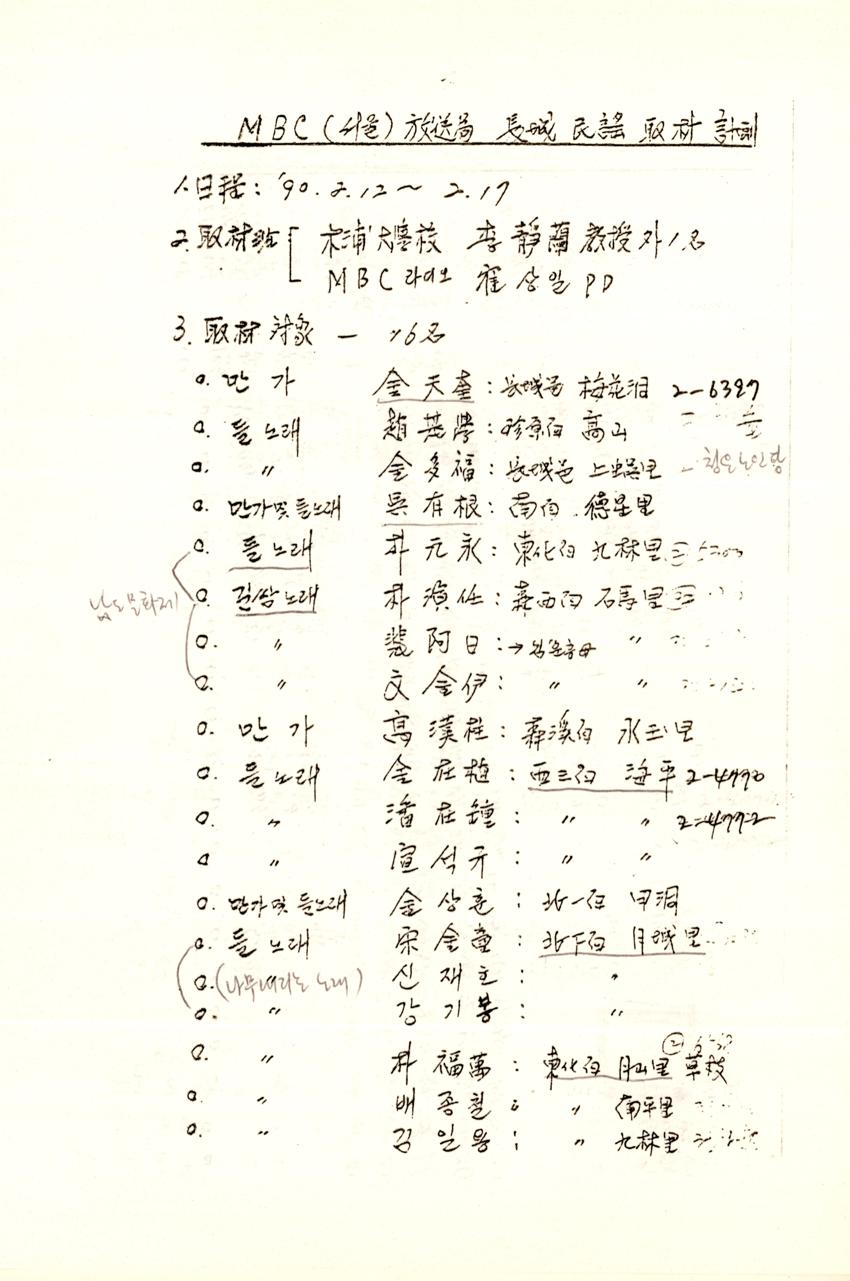 MBC (서울) 放送局 長城 民謠 取材 計劃
1. 日程: '90. 2. 12 ~ 2. 17
2. 取材班 木浦大學校 李靜蘭 教授 外 1名
MBC 라디오 崔상일 PD
3. 取材 対象 — 16名
o. 만가 金天奎: 長城邑 梅花洞 2-6327
o. 들노래 趙英學: 珍原面 高山
o. 〃 金多福: 長城邑 上蜈里
o. 만가 및 들노래 吳有根: 南面 德星里
o. 들노래 朴元永: 東化面 九林里
남도문화제 o. 길쌈노래 朴演任: 森西面 石馬里
o. 〃 裵阿日: → 〃
o. 〃 文金伊: 〃 〃
o. 만가 高漢柱: 森溪面 水玉里
o. 들노래 金在植: 西三面 海平 2-4990
o. 〃 潘在鐘: 〃 〃 2-4992
o. 〃 宣석규: 〃 〃
o. 만가 및 들노래 金상훈: 北一面
o. 들노래 宋金童: 北下面 月城里
o. (나무내리는 노래) 신재호: 〃
o. 〃 강기봉: 〃
o. 〃 朴福萬: 東化面 月山里 草枝
o. 〃 배종철: 〃 南平里
o. 〃 김일용: 〃 九林里